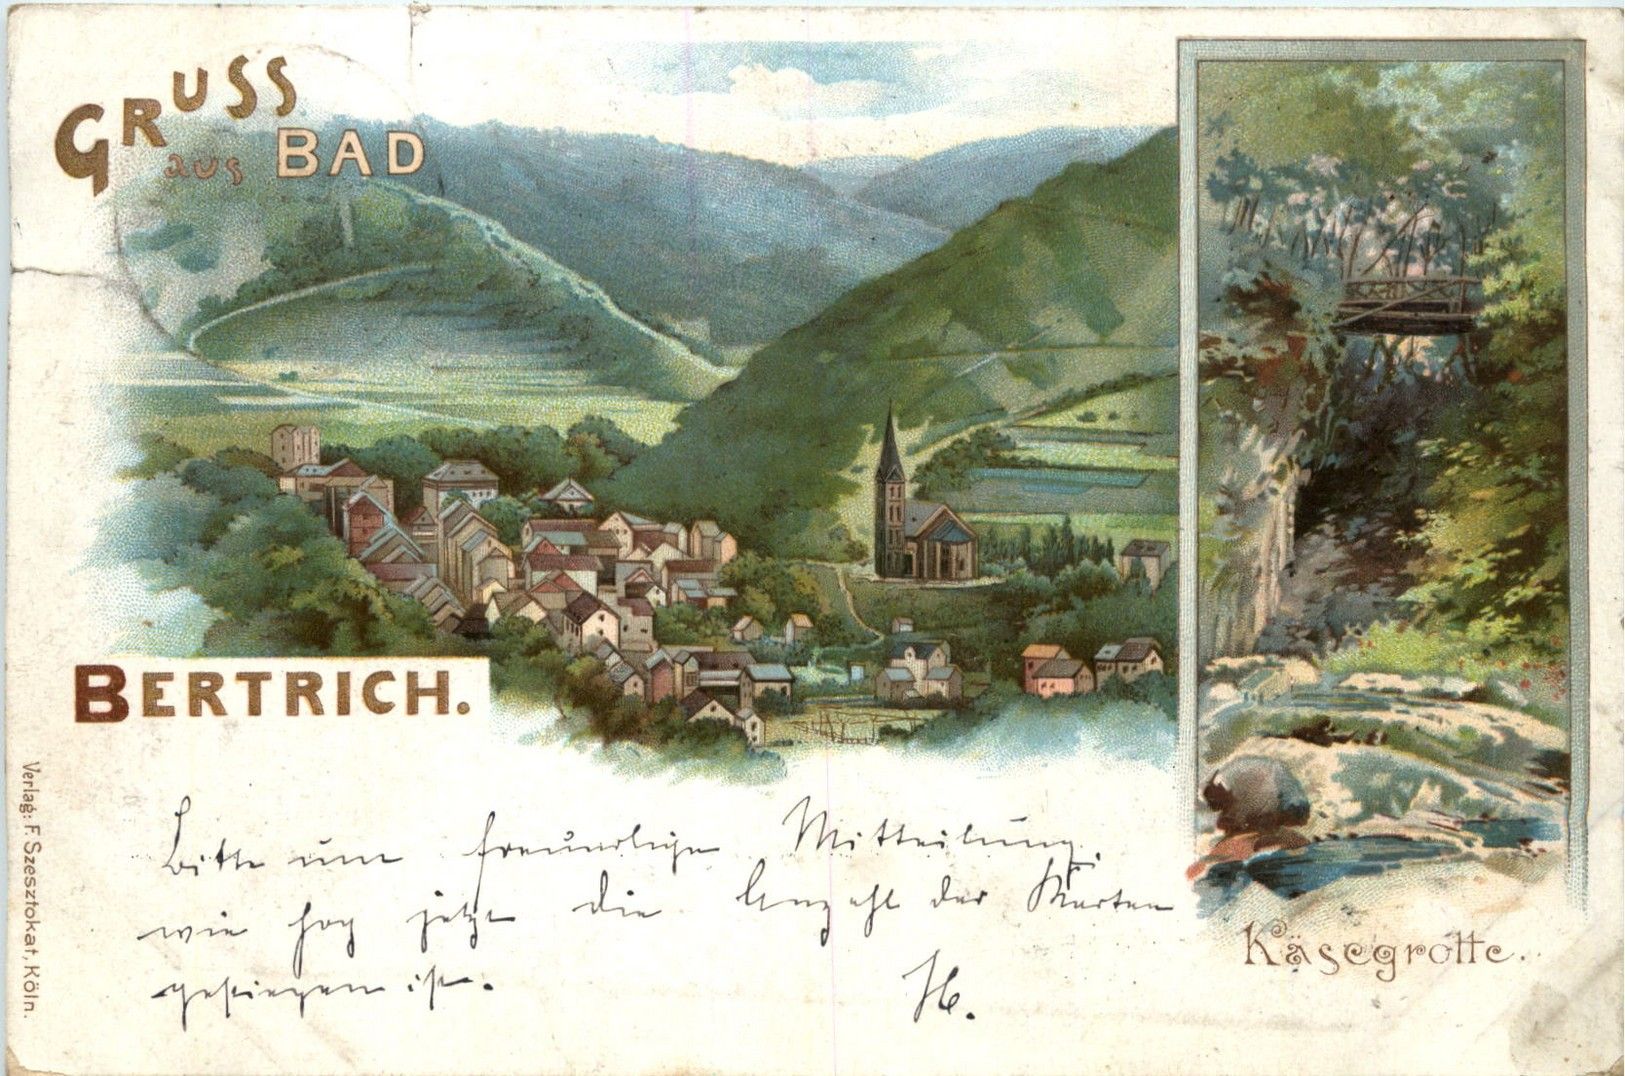 GRUSS
aus BAD
BERTRICH.
Bitte um freundliche Mitteilung,
wie hoch jetzt die Anzahl der Karten
gestiegen ist.
H.
Käsegrotte.
Verlag: F. Szesztokat, Köln.